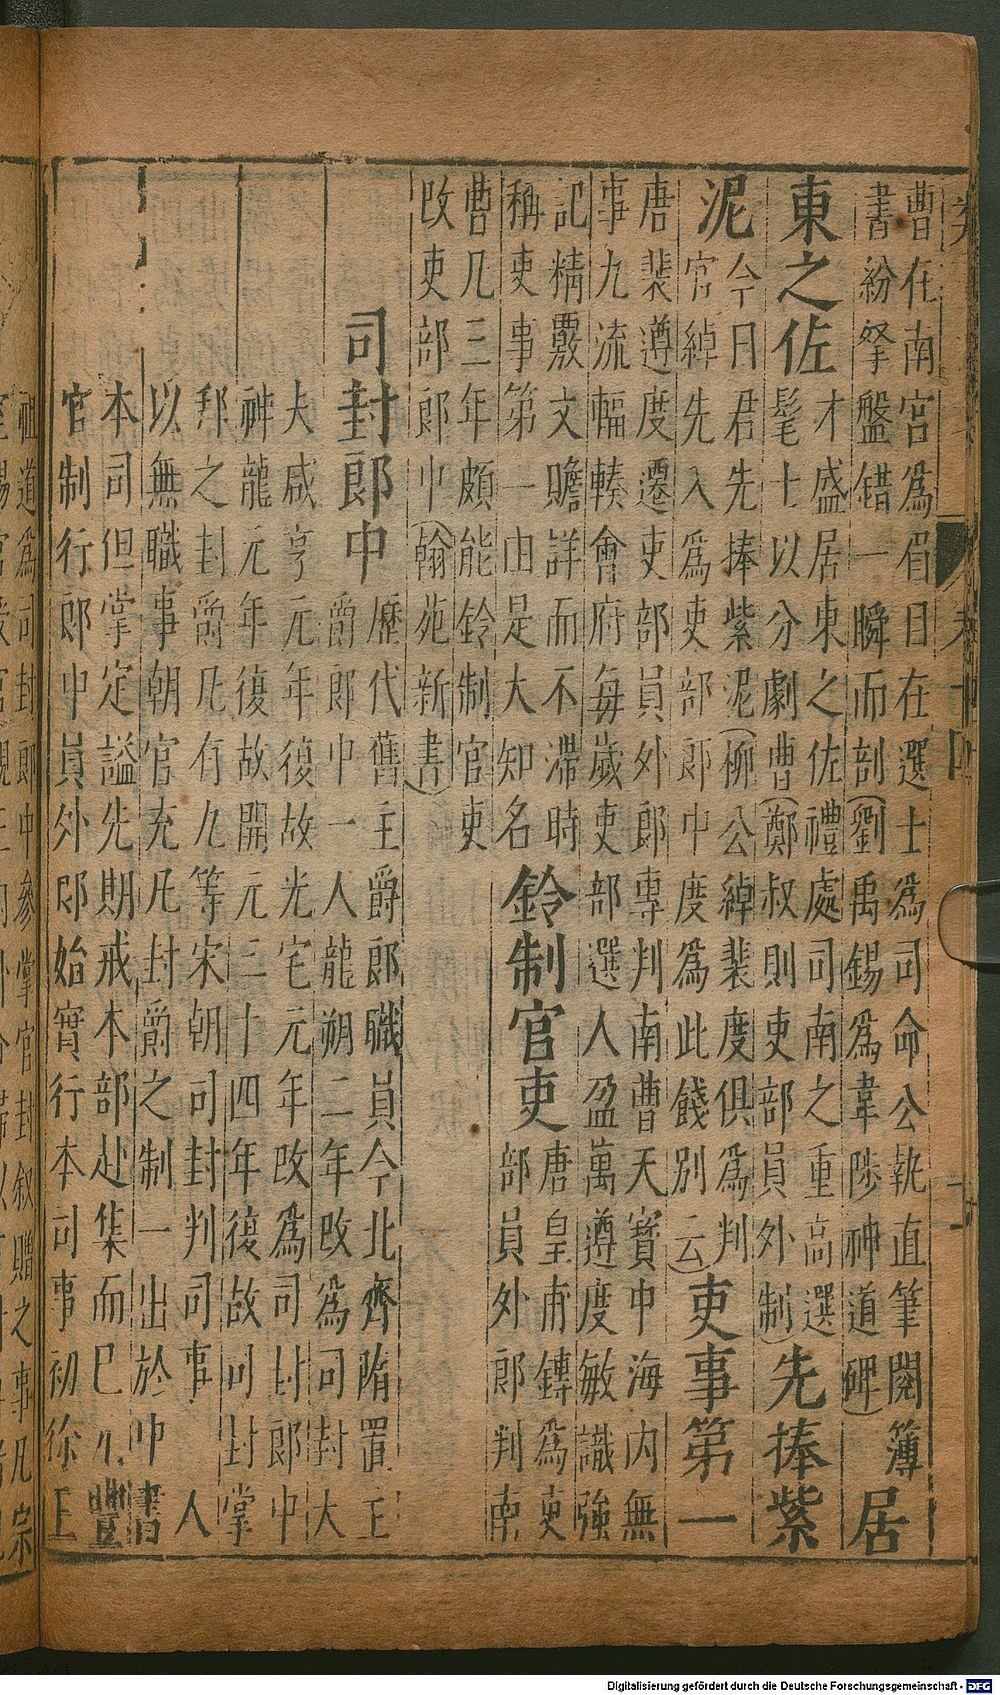 曹在南宮爲眉目在選士爲司命公執直筆閱簿
書紛拏盤錯一瞬而剖(劉禹錫爲韋陟神道碑)居
東之佐
才盛居東之佐禮處司南之重高選
髦士以分劇曹(鄭叔則吏部員外制)先捧紫
泥
今日君先捧紫泥(柳公綽裴度俱爲判
官綽先入爲吏部郎中度爲此餞別云)吏事第一
唐裴遵度遷吏部員外郎專判南曹天寶中海內無
事九流輻輳會府每歲吏部選人盈萬遵度敏識強
記精覈文贍詳而不滯時
稱吏事第一由是大知名
鈐制官吏
唐皇甫鏄爲吏
部員外郎判南
曹凡三年頗能鈐制官吏
改吏部郎中(翰苑新書)
司封郎中
歷代舊主爵郎職員今北齊隋置主
爵郎中一人龍朔二年改為司封大
夫咸亨元年復故光宅元年改爲司封郎中
神龍元年復故開元二十四年復故司封掌
邦之封爵凡有九等宋朝司封判司事人
以無職事朝官充凡封爵之制一出於中書
本司但掌定謚先期戒本部赴集而已元豐
官制行郎中員外郎始實行本司事初徐王
祖道爲司封郎中參掌官封叙贈之事凡宗